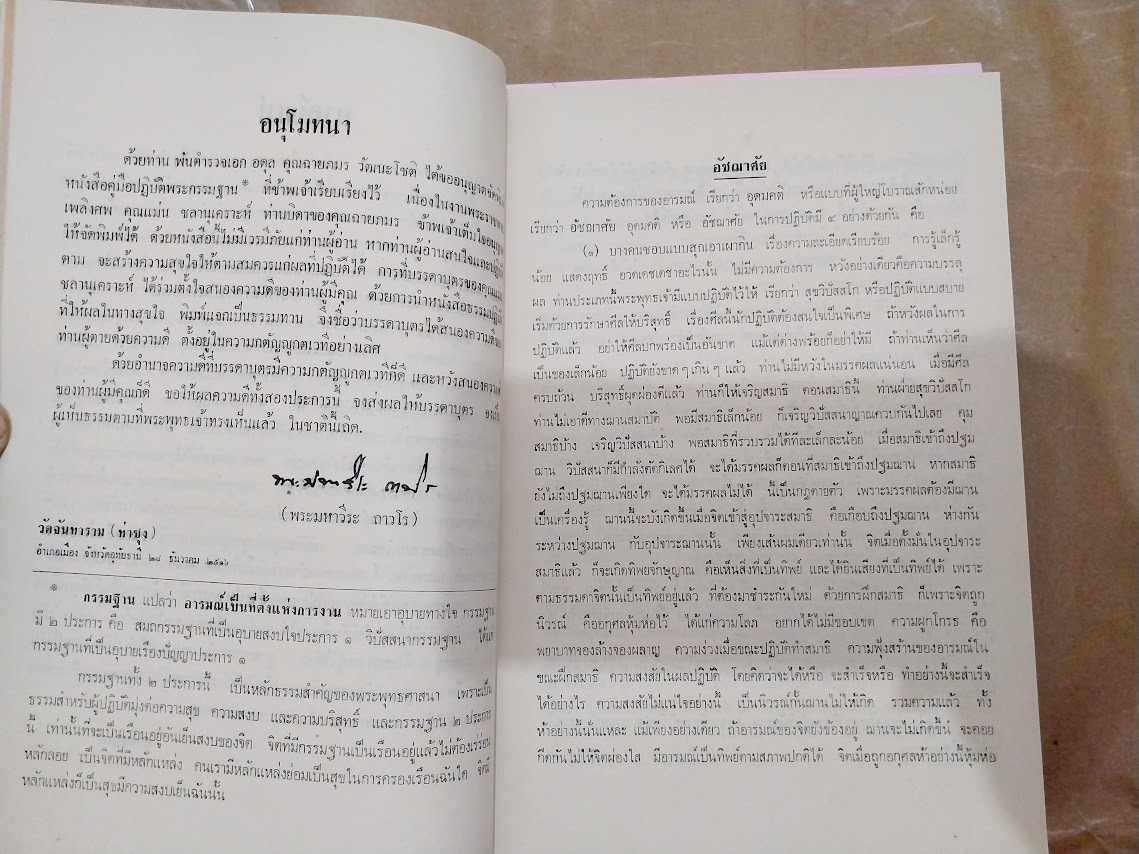 อนุโมทนา
ด้วยท่าน พันตำรวจเอก อดุล คุณฉายภมร วัฒนะโชติ ได้ขออนุญาตจัดพิมพ์
หนังสือคู่มือปฏิบัติพระกรรมฐาน* ที่ข้าพเจ้าเรียบเรียงไว้ เนื่องในงานพระราชทาน
เพลิงศพ คุณแม่น ชลานุเคราะห์ ท่านบิดาของคุณฉายภมร ข้าพเจ้าเต็มใจอนุญาต
ให้จัดพิมพ์ได้ ด้วยหนังสือนี้ไม่มีเวรมีภัยแก่ท่านผู้อ่าน หากท่านผู้อ่านสนใจและปฏิบัติ
ตาม จะสร้างความสุขใจให้ตามสมควรแก่ผลที่ปฏิบัติได้ การที่บรรดาบุตรของคุณแม่น
ชลานุเคราะห์ ได้ร่วมตั้งใจสนองความดีของท่านผู้มีคุณ ด้วยการนำหนังสือธรรมปฏิบัติ
ที่ให้ผลในทางสุขใจ พิมพ์แจกเป็นธรรมทาน จึงชื่อว่าบรรดาบุตรได้สนองความดี
ท่านผู้ตายด้วยความดี ตั้งอยู่ในความกตัญญูกตเวทีอย่างเลิศ
ด้วยอำนาจความดีที่บรรดาบุตรมีความกตัญญูกตเวทีก็ดี และหวังสนองความดี
ของท่านผู้มีคุณก็ดี ขอให้ผลความดีทั้งสองประการนี้ จงส่งผลให้บรรดาบุตร จงเป็น
ผู้เห็นธรรมตามที่พระพุทธเจ้าทรงเห็นแล้ว ในชาตินี้เถิด.
(พระมหาวีระ ถาวโร)
วัดจันทาราม (ท่าซุง)
อำเภอเมือง จังหวัดอุทัยธานี ๒๘ ธันวาคม ๒๕๑๖
* กรรมฐาน แปลว่า อารมณ์เป็นที่ตั้งแห่งการงาน หมายเอาอุบายทางใจ กรรมฐาน
มี ๒ ประการ คือ สมถกรรมฐานที่เป็นอุบายสงบใจประการ ๑ วิปัสสนากรรมฐาน ได้แก่
กรรมฐานที่เป็นอุบายเรืองปัญญาประการ ๑
กรรมฐานทั้ง ๒ ประการนี้ เป็นหลักธรรมสำคัญของพระพุทธศาสนา เพราะเป็น
ธรรมสำหรับผู้ปฏิบัติมุ่งคือความสุข ความสงบ และความบริสุทธิ์ และกรรมฐาน ๒ ประการ
นี้ เท่านั้นที่จะเป็นเรือนอยู่อันเย็นสงบของจิต จิตที่มีกรรมฐานเป็นเรือนอยู่แล้วไม่ต้องเร่ร่อน
หลักลอย เป็นจิตที่มีหลักแหล่ง คนเรามีหลักแหล่งย่อมเป็นสุขในการครองเรือนฉันใด จิตมี
หลักแหล่งก็เป็นสุขมีความสงบเย็นฉันนั้น
อัชฌาศัย
ความต้องการของอารมณ์ เรียกว่า อุดมคติ หรือแบบที่ผู้ใหญ่โบราณสักหน่อย
เรียกว่า อัชฌาศัย อุดมคติ หรือ อัชฌาศัย ในการปฏิบัติมี ๔ อย่างด้วยกัน คือ
(๑) บางคนชอบแบบสุกเอาเผากิน เรื่องความละเอียดเรียบร้อย การรู้เล็กรู้
น้อย แสดงฤทธิ์ อวดเดชเดชาอะไรนั้น ไม่มีความต้องการ หวังอย่างเดียวคือความบรรลุ
ผล ท่านประเภทนี้พระพุทธเจ้ามีแบบปฏิบัติไว้ให้ เรียกว่า สุขวิปัสสโก หรือปฏิบัติแบบสบาย
เริ่มด้วยการรักษาศีลให้บริสุทธิ์ เรื่องศีลนี้นักปฏิบัติต้องสนใจเป็นพิเศษ ถ้าหวังผลในการ
ปฏิบัติแล้ว อย่าให้ศีลบกพร่องเป็นอันขาด แม้แต่ด่างพร้อยก็อย่าให้มี ถ้าท่านเห็นว่าศีล
เป็นของเล็กน้อย ปฏิบัติยังขาดๆเกินๆ แล้ว ท่านไม่มีหวังในมรรคผลแน่นอน เมื่อมีศีล
ครบถ้วน บริสุทธิ์ผุดผ่องดีแล้ว ท่านก็ให้เจริญสมาธิ ตอนสมาธินี้ ท่านฝ่ายสุขวิปัสสโก
ท่านไม่เอาดีทางฌานสมาบัติ พอมีสมาธิเล็กน้อย ก็เจริญวิปัสสนาญาณควบกันไปเลย คุม
สมาธิบ้าง เจริญวิปัสสนาบ้าง พอสมาธิที่รวบรวมได้ทีละเล็กละน้อย เมื่อสมาธิเข้าถึงปฐม
ฌาน วิปัสสนาก็มีกำลังตัดกิเลศได้ จะได้มรรคผลก็ตอนที่สมาธิเข้าถึงปฐมฌาน หากสมาธิ
ยังไม่ถึงปฐมฌานเพียงใด จะได้มรรคผลไม่ได้ นี้เป็นกฎตายตัว เพราะมรรคผลต้องมีฌาน
เป็นเครื่องรู้ ฌานนี้จะบังเกิดขึ้นเมื่อจิตเข้าสู่อุปจาระสมาธิ คือเกือบถึงปฐมฌาน ห่างกัน
ระหว่างปฐมฌาน กับอุปจาระฌานนั้น เพียงเส้นผมเดียวเท่านั้น จิตเมื่อตั้งมั่นในอุปจาระ
สมาธิแล้ว ก็จะเกิดทิพยจักษุญาณ คือเห็นสิ่งที่เป็นทิพย์ และได้ยินเสียงที่เป็นทิพย์ได้ เพราะ
ตามธรรมดาจิตนั้นเป็นทิพย์อยู่แล้ว ที่ต้องมาชำระกันใหม่ ด้วยการฝึกสมาธิ ก็เพราะจิตถูก
นิวรณ์ คืออกุศลหุ้มห่อไว้ ได้แก่ความโลภ อยากได้ไม่มีขอบเขต ความผูกโกรธ คือ
พยาบาทจองล้างจองผลาญ ความง่วงเมื่อขณะปฏิบัติทำสมาธิ ความฟุ้งสร้านของอารมณ์ใน
ขณะฝึกสมาธิ ความสงสัยในผลปฏิบัติ โดยคิดว่าจะได้หรือ จะสำเร็จหรือ ทำอย่างนี้จะสำเร็จ
ได้อย่างไร ความสงสัยไม่แน่ใจอย่างนี้ เป็นนิวรณ์กั้นฌานไม่ให้เกิด รวมความแล้ว ทั้ง
ห้าอย่างนี้นั่นแหละ แม้เพียงอย่างเดียว ถ้าอารมณ์ของจิตยังข้องอยู่ ฌานจะไม่เกิดขึ้น จะคอย
กีดกันไม่ให้จิตผ่องใส มีอารมณ์เป็นทิพย์ตามสภาพปกติได้ จิตเมื่อถูกอกุศลห้าอย่างนี้หุ้มห่อ